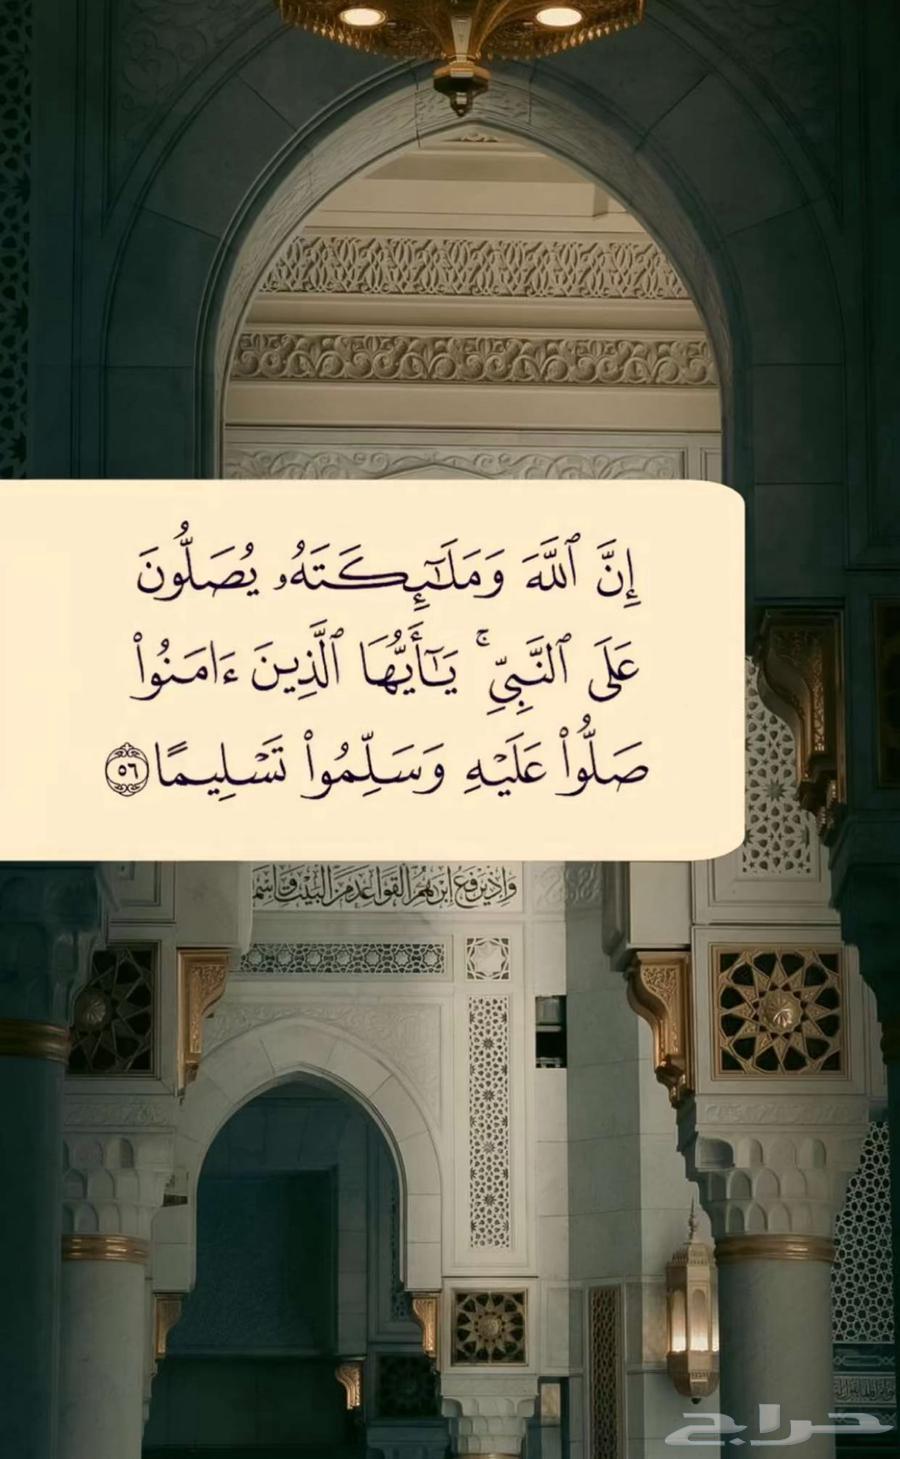 إِنَّ ٱللَّهَ وَمَلَـٰٓئِكَتَهُۥ يُصَلُّونَ
عَلَى ٱلنَّبِىِّ ۚ يَـٰٓأَيُّهَا ٱلَّذِينَ ءَامَنُوا۟
صَلُّوا۟ عَلَيْهِ وَسَلِّمُوا۟ تَسْلِيمًا ٥٦
وإذ يرفع إبرهم القواعد من البيت وإسم
حراج